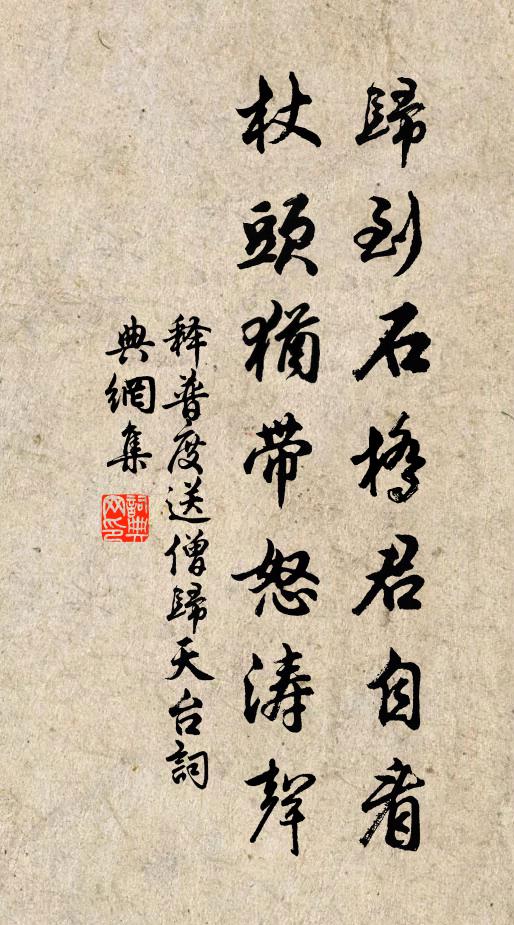 歸到石橋君自看
杖頭猶帶怒濤聲
释普度送僧歸天台詞
典網集
詞典網印